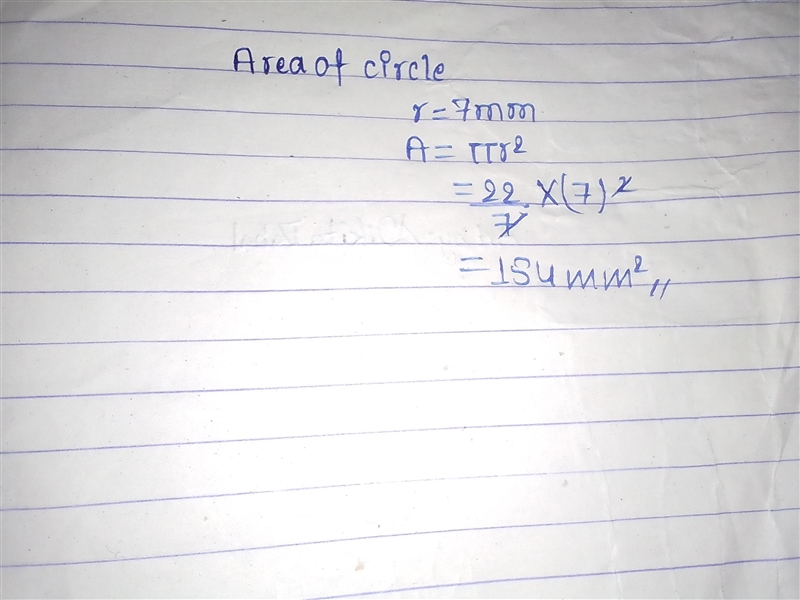 Area of circle
r = 7mm
A = πr²
= 22/7 × (7)²
= 154 mm² //